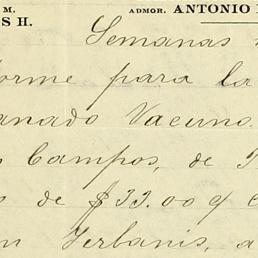 M. ADMOR. ANTONIO
S H.
Semanas
orme para la
anado Vacuno.
s Campos, de
s de $33.00 q c
n Yerbanis, a